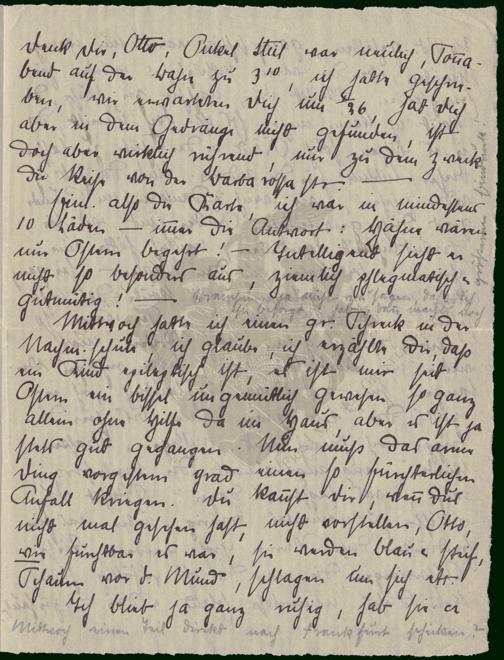 Denk dir, Otto, Onkel Stul war neulich, Sonna-
bend auf der Bahn zu 3¹⁰, ich hatte geschrie-
ben, wir erwarteten dich um 36, hat dich
aber in dem Gedränge nicht gefunden, ist
doch aber wirklich rührend, nur zu dem Zweck
die Reise von der Barbarossastr. —
also die Karte, ich war in mindestens
10 Läden — immer die Antwort: Hähne wären
nur Ostern begehrt! — Intelligent sieht er
nicht so besonders aus, ziemlich phlegmatisch u
gutmütig! —
Mittwoch hatte ich einen gr. Schreck in der
Nachm. schule, ich glaube, ich erzählte dir, daß
ein Kind epileptisch ist, es ist mir seit
Ostern ein bissel ungemütlich gewesen so ganz
allein ohne Hilfe da im Haus, aber es ist ja
stets gut gegangen. Nun muss das arme
Ding vorgestern grad einen so fürchterlichen
Anfall kriegen. Du kannst dir, wenn du's
nicht mal gesehen hast, nicht vorstellen, Otto,
wie furchtbar es war, sie werden blau u steif,
Schaum vor d. Mund, schlagen um sich etc.
Ich blieb ja ganz ruhig, hab sie a
Mittwoch einen Teil direkt nach Frankfurt schicken?